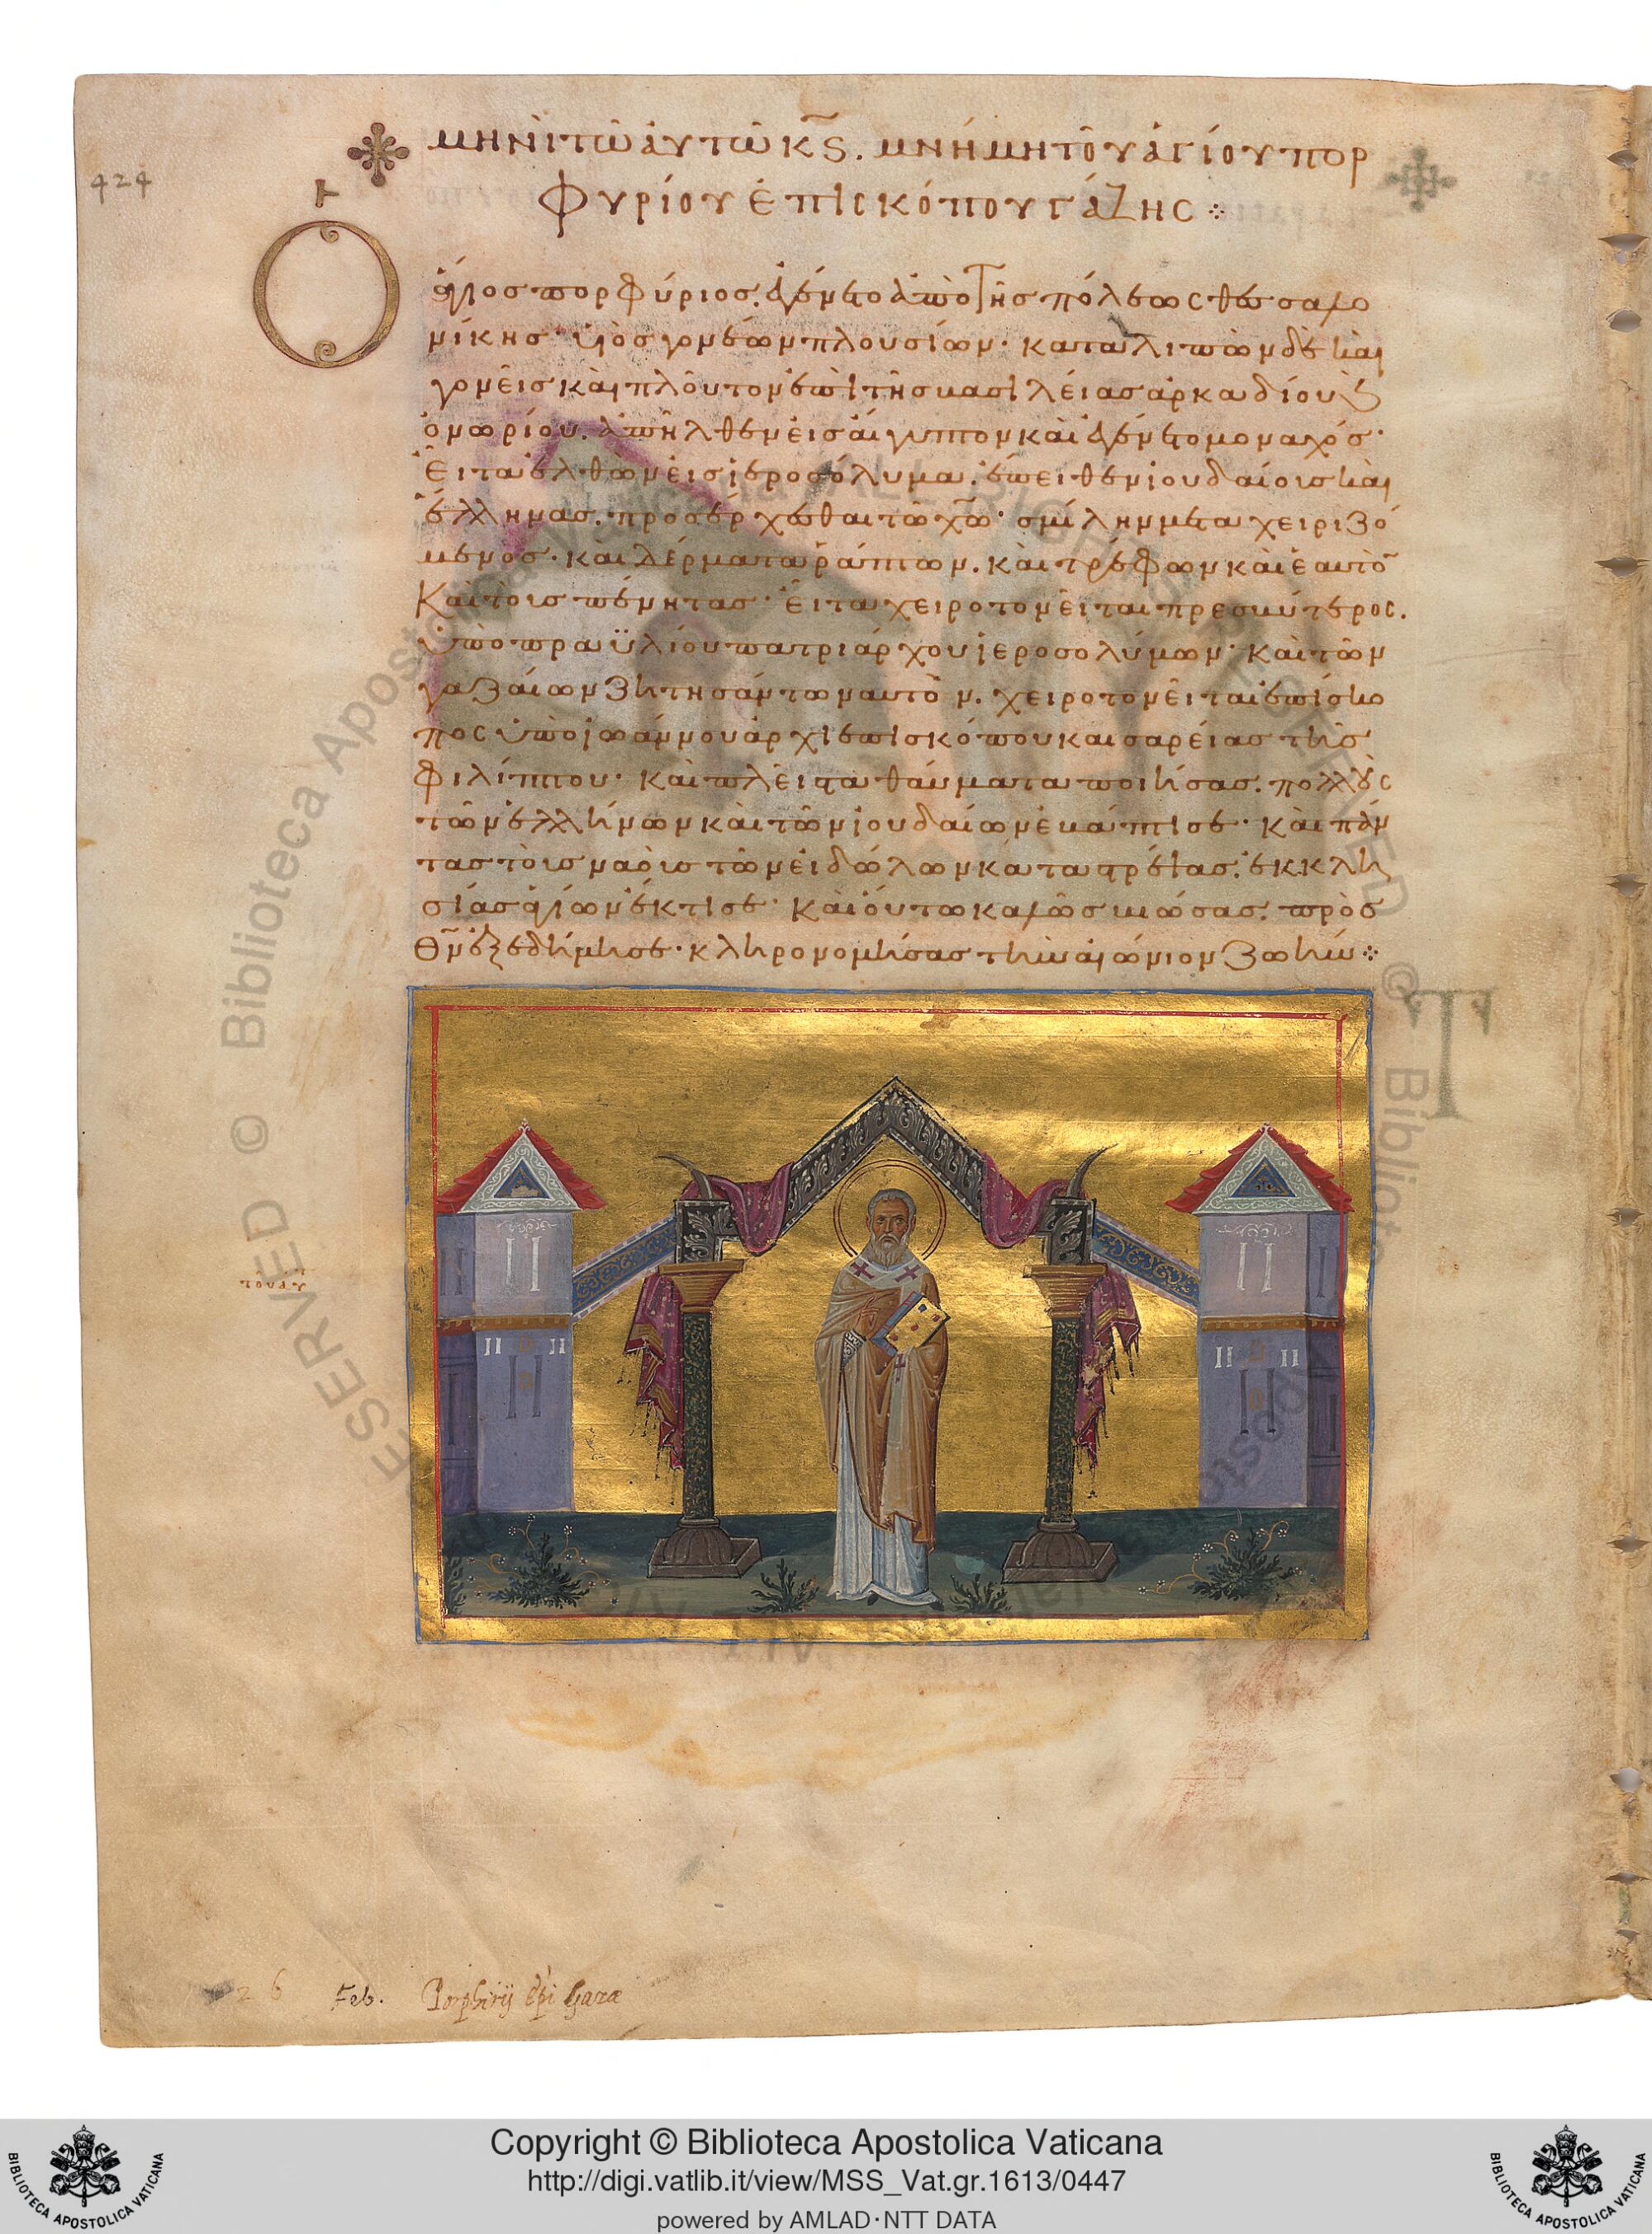 424
μηνὶ τῶ ἀυτῶ κϛ. μνήμη τοῦ ἁγίου πορ
φυρίου ἐπισκόπου γάζης ⁘
Ο ἅγιος πορφύριος, ἐγένετο ἀπὸ τῆς πόλεως θεσσαλο
νίκης· υἱὸς γονέων πλουσίων· καταλιπὼν δὲ καὶ
γονεῖς καὶ πλοῦτον ἐπὶ τῆς βασιλείας ἀρκαδίου ϗ
ὁνωρίου, ἀπῆλθεν εἰς ἄιγυπτον καὶ ἐγένετο μοναχός·
Εἶτα ἐλθὼν εἰς ἱεροσόλυμα, ἔπειθεν ἰουδαίοις καὶ
ἕλληνας, προσέρχεσθαι τῶ χῶ· σμίλην μεταχειριζό
μενος· καὶ δέρματα ῥάπτων, καὶ τρέφων καὶ ἑαυτὸ
Καὶ τοῖς πένητας· Εἶτα χειροτονεῖται πρεσβύτερος,
ὑπὸ πραϋλίου πατριάρχου ἱεροσολύμων· Καὶ τῶν
γαζαίων ζητησάντων αυτὸν, χειροτονεῖται ἐπίσκο
πος ὑπὸ ἰωάννου ἀρχιεπισκόπου καισαρείας τῆς
φιλίππου· Καὶ πλεῖστα θαύματα ποιήσας, πολλοὺς
τῶν ἑλλήνων καὶ τῶν ἰουδαίων ἐβάπτισε· Καὶ πάν
τας τοῖς ναοῖς τῶν εἰδώλων καταστρέψας, ἐκκλη
σίας ἁγίων ἔκτισε· Καὶ οὕτω καλῶς βιώσας, πρὸς
Θν ἐξεδήμησε· κληρονομήσας τὴν αἰώνιον ζωήν ⁘
26 Feb. Porphirij epi Gazæ
BIBLIOTECA APOSTOLICA VATICANA
Copyright © Biblioteca Apostolica Vaticana
http://digi.vatlib.it/view/MSS_Vat.gr.1613/0447
powered by AMLAD·NTT DATA
BIBLIOTECA APOSTOLICA VATICANA